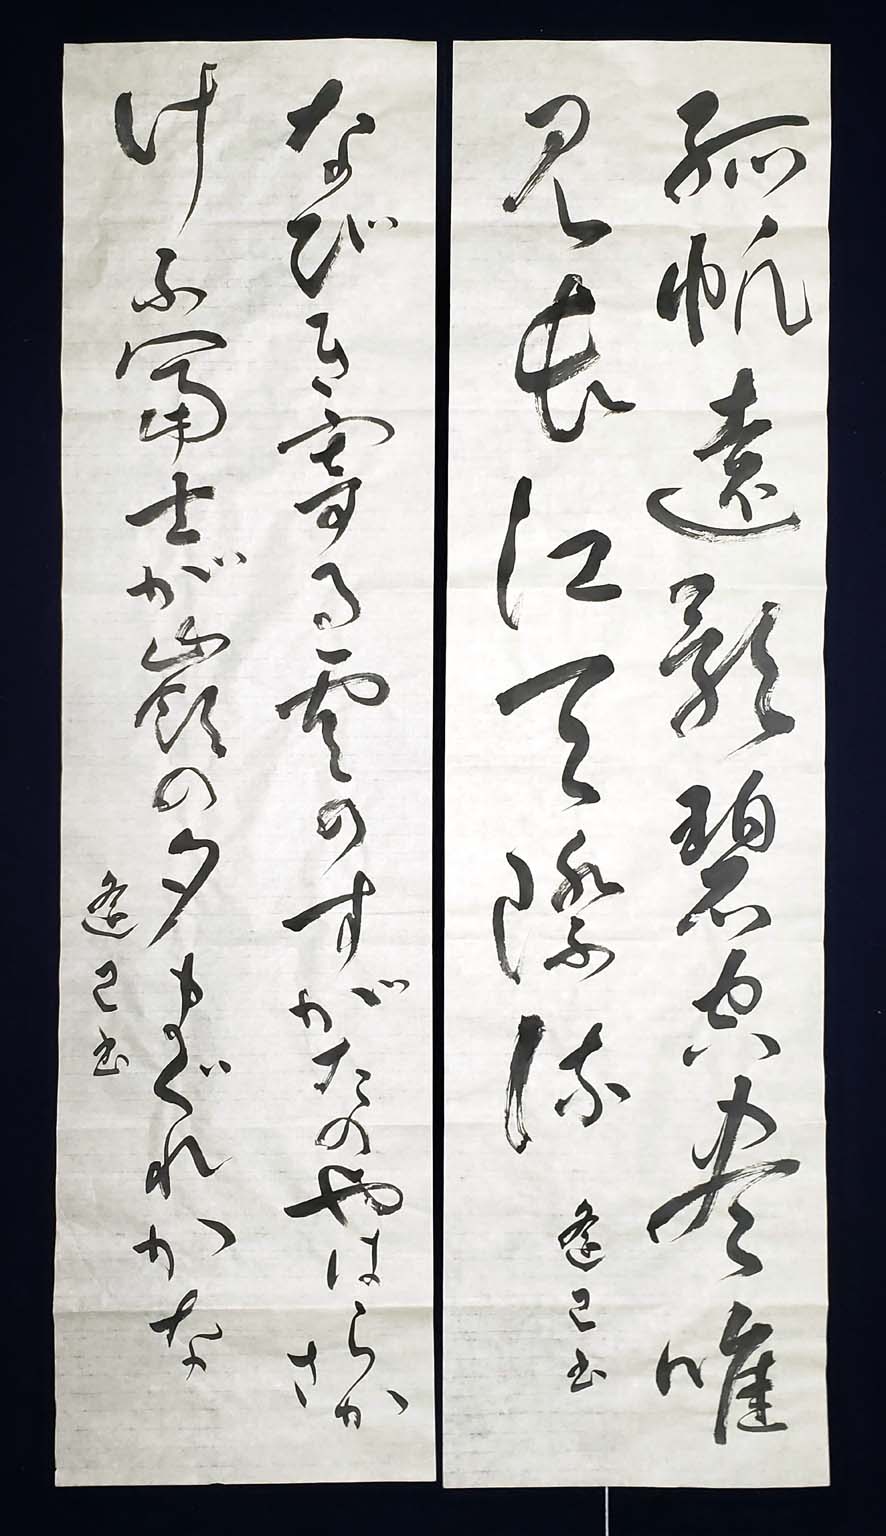 孤帆遠影碧空尽唯
見長江天際流
逢己書
なびき寄る雲のすがたのやはらかさ
けふ富士が嶺の夕まぐれかな
逢己書